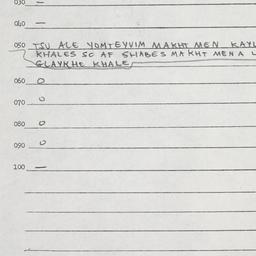 030 —
040 —
050 TSU ALE YOMTEYVIM MAKHT MEN KAYL
KHALES SO AF SHABES MAKHT MEN A L
GLAYKHE KHALE
060 O
070 O
080 O
090 O
100 —